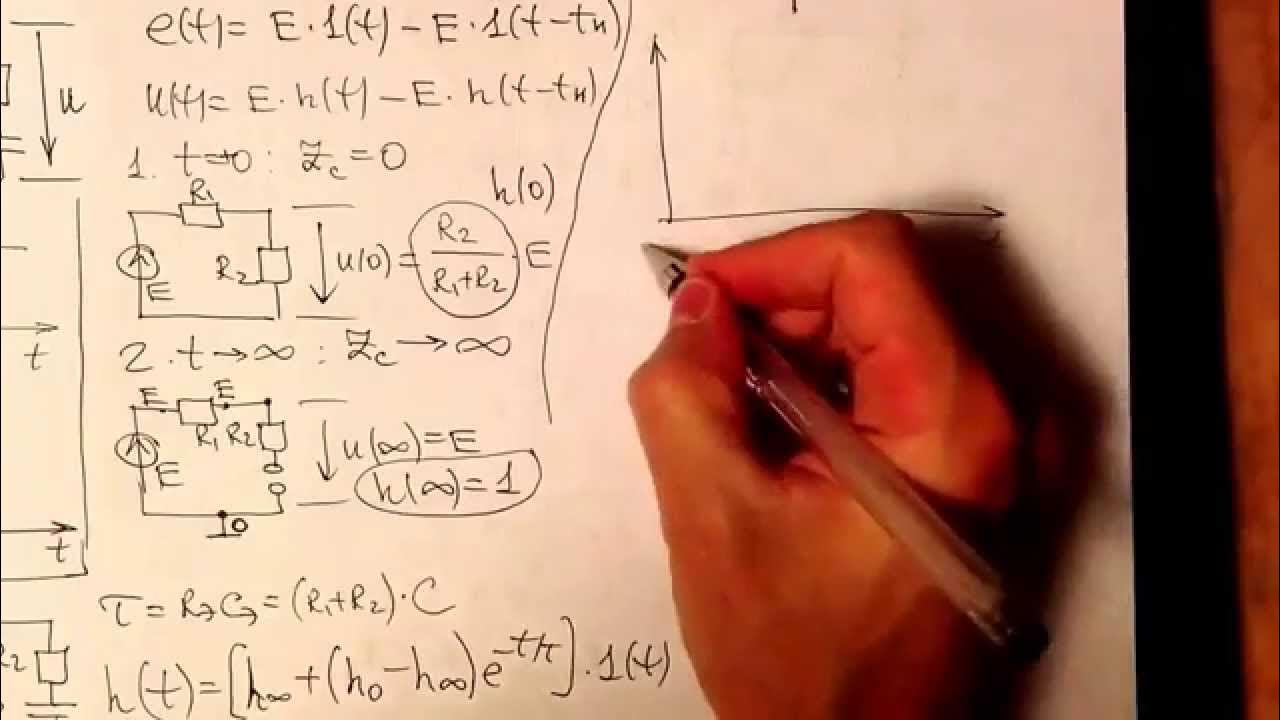 e(t)= E·1(t) – E·1(t–tи)
u
u(t)= E·h(t) – E·h(t–tи)
1. t→0 : Zc=0
R1
h(0)
R2
E
u(0)= R2/(R1+R2) ·E
2. t→∞ : Zc→∞
t
E E
R1 R2
E
u(∞)=E
h(∞)=1
0
t
τ = RэCэ = (R1+R2)·C
R2
h(t)=[h∞+(h0–h∞)e^(–t/τ)]·1(t)